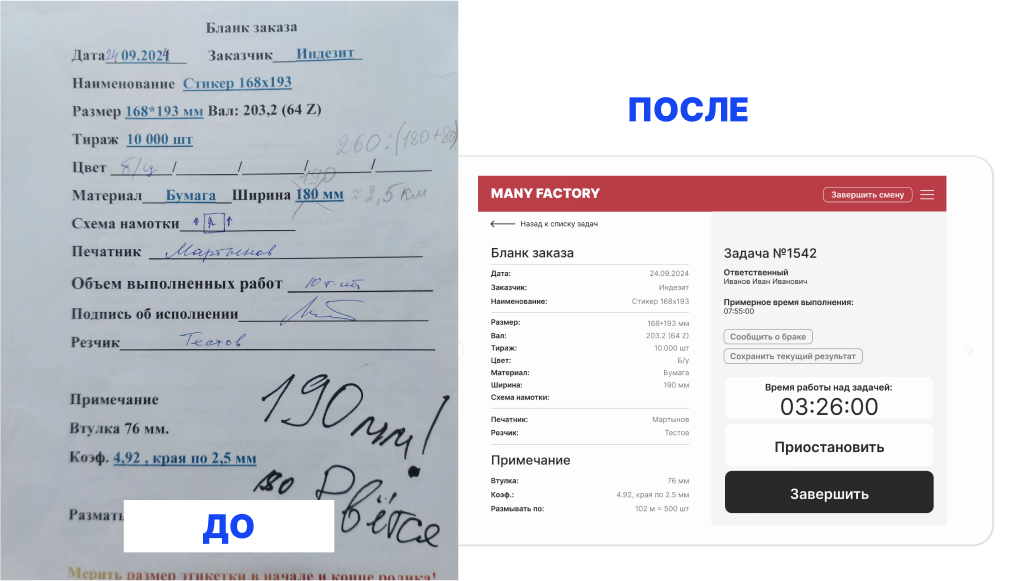 Бланк заказа
Дата 24 09.2024 Заказчик Индезит
Наименование Стикер 168х193
Размер 168*193 мм Вал: 203,2 (64 Z)
Тираж 10 000 шт
260:(180+80)
Цвет б/ц / / / /
190
Материал Бумага Ширина 180 мм ≈ 2,5 км
Схема намотки ↑ А ↑
Печатник Мартынов
Объем выполненных работ 10 т. шт
Подпись об исполнении
Резчик Тестов
190 мм!
Примечание
Втулка 76 мм.
Коэф. 4,92 , края по 2,5 мм
180 Рвётся
Размать
ДО
Мерить размер этикетки в начале и конце ролика!
ПОСЛЕ
MANY FACTORY
Завершить смену
Назад к списку задач
Бланк заказа
Дата: 24.09.2024
Заказчик: Индезит
Наименование: Стикер 168х193
Размер: 168*193 мм
Вал: 203.2 (64 Z)
Тираж: 10.000 шт
Цвет: Б/у
Материал: Бумага
Ширина: 190 мм
Схема намотки:
Печатник: Мартынов
Резчик: Тестов
Примечание
Втулка: 76 мм
Коэф.: 4.92, края по 2.5 мм
Размывать по: 102 м = 500 шт
Задача №1542
Ответственный
Иванов Иван Иванович
Примерное время выполнения:
07:55:00
Сообщить о браке
Сохранить текущий результат
Время работы над задачей:
03:26:00
Приостановить
Завершить